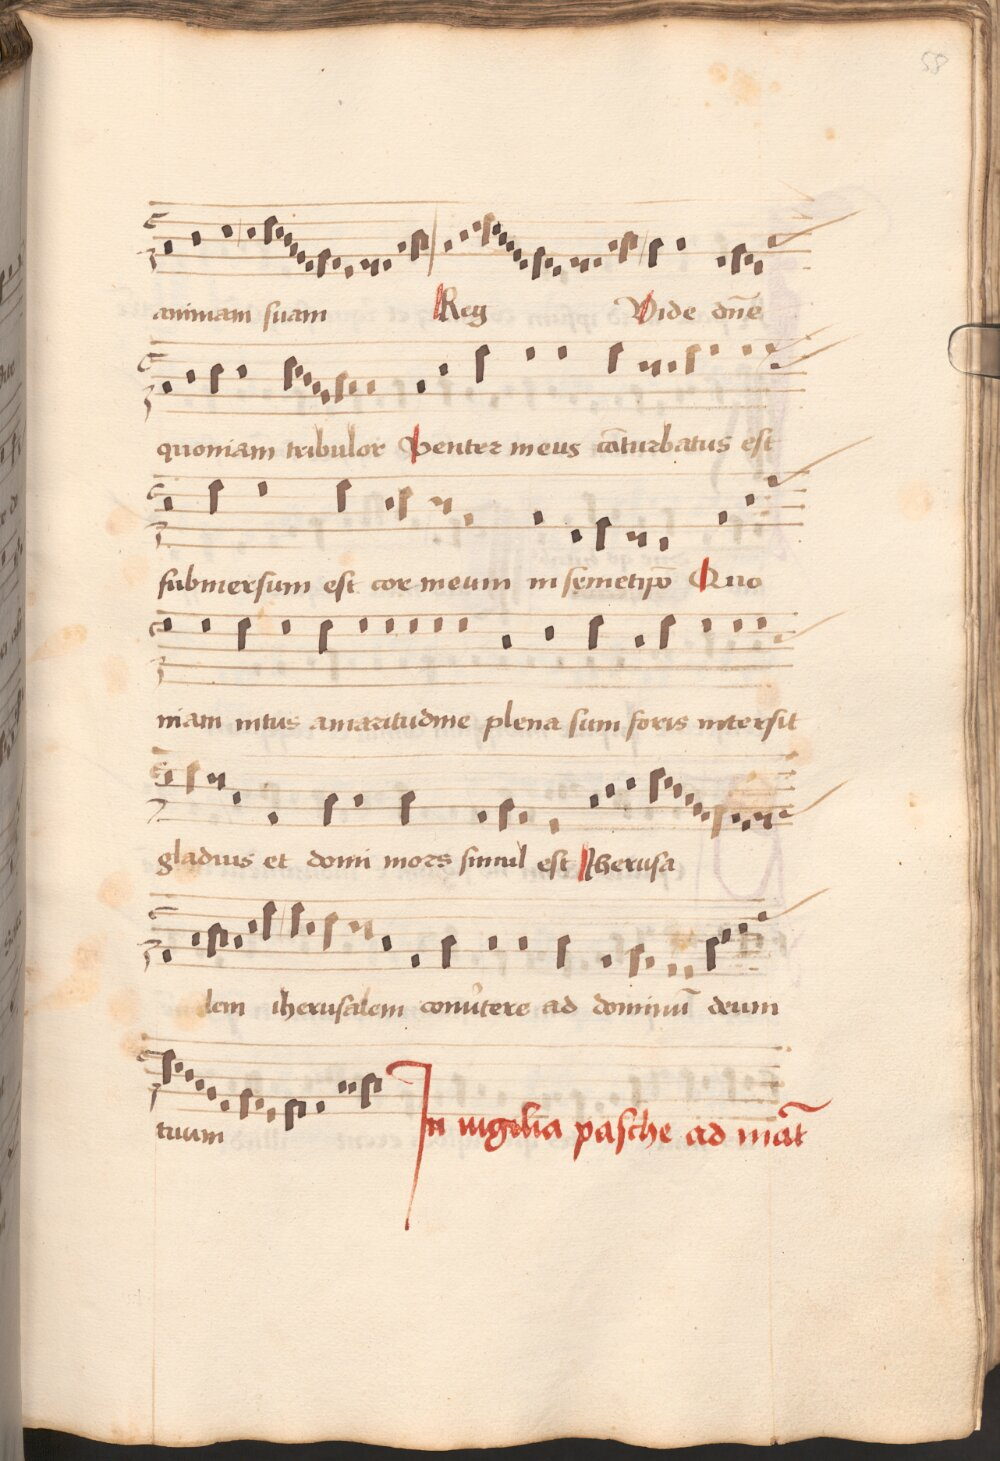 58
animam suam Reg Vide dn̄e
quoniam tribulor Venter meus cōturbatus est
submersum est cor meum in semetip̄o Quo
niam intus amaritudine plena sum foris intersit
gladius et domi mors simul est Iherusa
lem iherusalem conu̾tere ad dominū deum
tuum In uigelia pasche ad mat̄